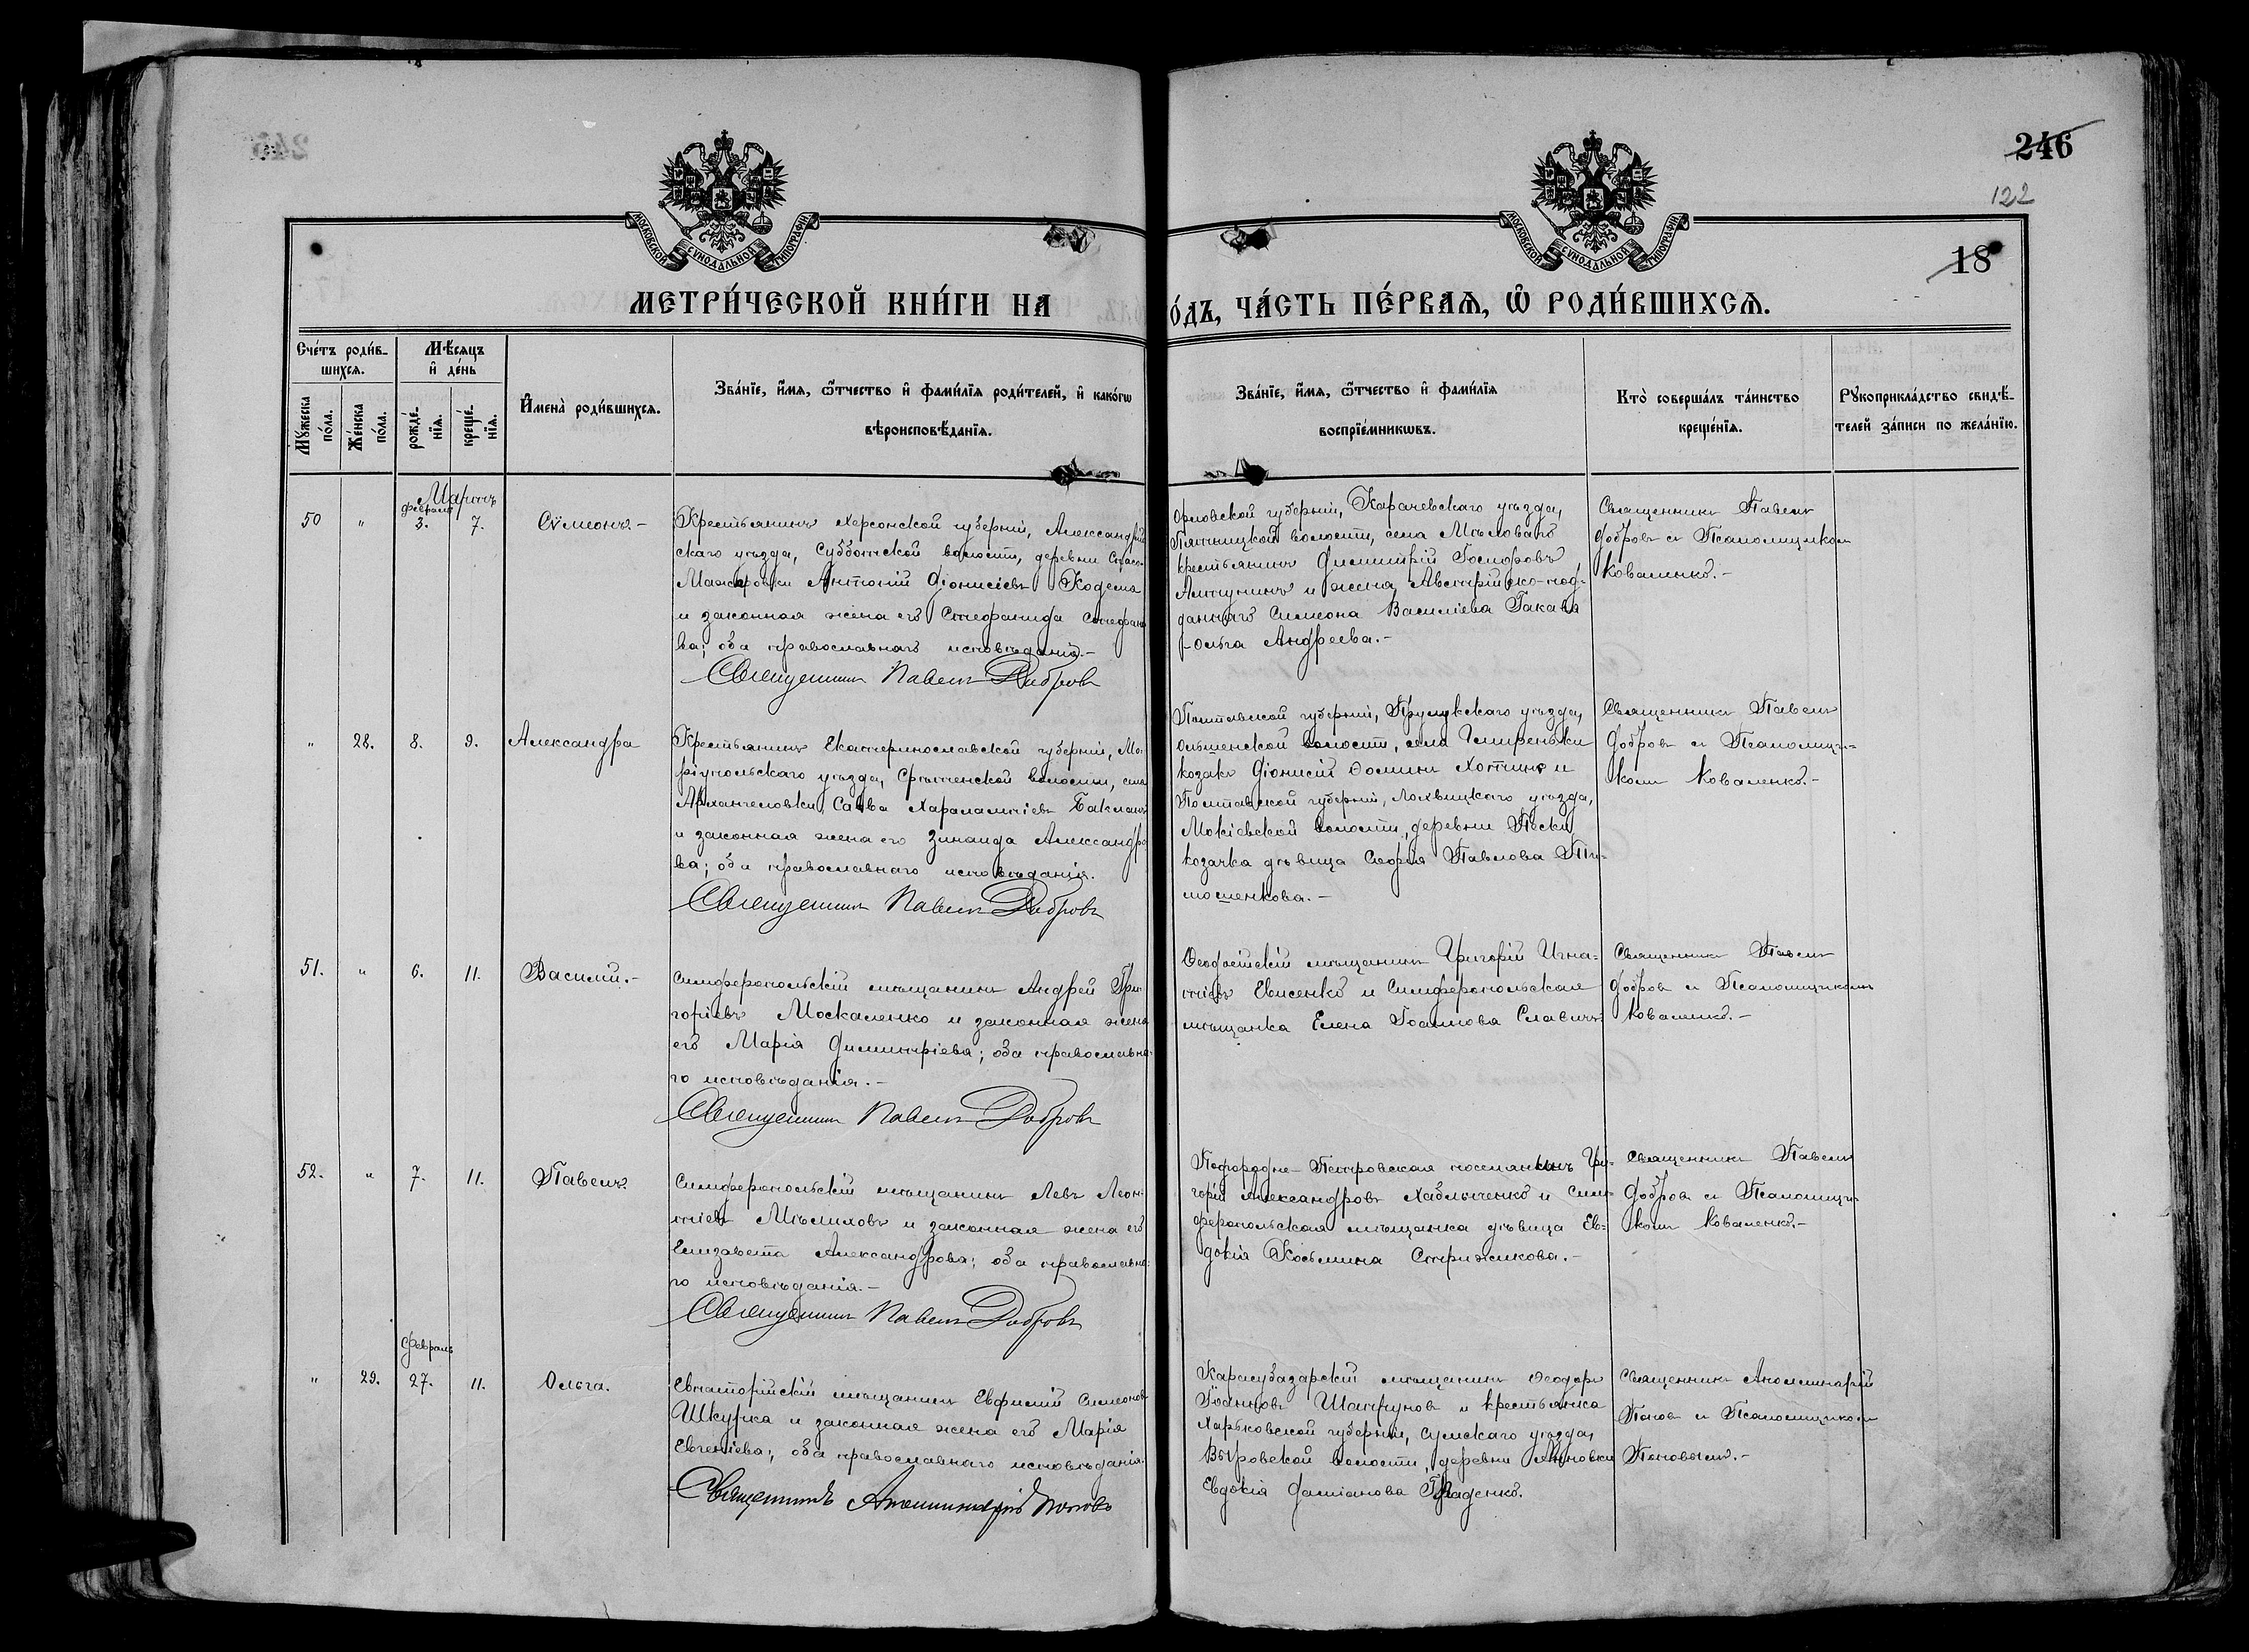 246
122
МОСКОВСКОЙ СѴНОДАЛЬНОЙ ТИПОГРАФІИ
МОСКОВСКОЙ СѴНОДАЛЬНОЙ ТИПОГРАФІИ
18
МЕТРИ́ЧЕСКОЙ КНИ́ГИ НА
О́ДЪ, ЧА́СТЬ ПЕ́РВАѦ, Ѡ҆ РОДИ́ВШИХСѦ.
Сче́тъ роди́в-
шихсѧ.
Мꙋ́жеска по́ла.
Же́нска по́ла.
Мѣ́сѧцъ
и҆ де́нь
рожде́-
нїѧ.
креще́-
нїѧ.
И҆мена̀ роди́вшихсѧ.
Зва́нїе, и҆́мѧ, ѻ҆́тчество и҆ фами́лїѧ роди́телей, и҆ како́гѡ
вѣроисповѣ́данїѧ.
Зва́нїе, и҆́мѧ, ѻ҆́тчество и҆ фами́лїѧ
воспрїе́мникѡвъ.
Кто̀ соверша́лъ та́инство
креще́нїѧ.
Рꙋкоприкла́дство свидѣ́-
телей за́писи по жела́нїю.
Мартъ
50 " Февраля 3. 7. Сѵмеонъ.-
Крестьянинъ Херсонской губерніи, Александрій
скаго уѣзда, Субботской волости, деревни Спасо-
Антоній Діонисіевъ Кодема
и законная жена его Стефанида Стефано
ва; оба православнаго исповѣданія.-
Священникъ Павелъ Добровъ
Орловской губерніи, Карачевскаго уѣзда,
Пятницкой волости, села
крестьянинъ Димитрій
и жена Австрійско-под-
даннаго Симеона Василіева
Ольга Андреева.-
Священникъ Павелъ
Добровъ съ Псаломщикомъ
Коваленко.-
" 28. 8. 9. Александра
Крестьянинъ Екатеринославской губерніи, Ма-
ріупольскаго уѣзда, Срѣтенской волости, села
Архангеловки, Савва Харалампіевъ Бакланъ
и законная жена его Зинаида Александро
ва; оба православнаго исповѣданія.
Священникъ Павелъ Добровъ
Полтавской губерніи, Прилукскаго уѣзда,
Ольшенской волости, села
козакъ Діонисій Ѳоминъ и
Полтавской губерніи, Лохвицкаго уѣзда,
Мокіевской волости, деревни Пески
козачка дѣвица Софія Павлова Ти-
мошенкова.-
Священникъ Павелъ
Добровъ съ Псаломщи-
комъ Коваленко.-
51. " 6. 11. Василій.-
Симферопольскій мѣщанинъ Андрей Гри-
горіевъ Москаленко и законная жена
его Марія Димитріева; оба православна-
го исповѣданія.-
Священникъ Павелъ Добровъ
Ѳеодосійскій мѣщанинъ Григорій Игна-
тіевъ Евисенко и Симферопольская
мѣщанка Елена Іоаннова
Священникъ Павелъ
Добровъ съ Псаломщикомъ
Коваленко.-
52. " 7. 11. Павелъ.
Симферопольскій мѣщанинъ Левъ Леон-
тіевъ Мѣлиховъ и законная жена его
Елизавета Александрова; оба православна-
го исповѣданія.-
Священникъ Павелъ Добровъ
Подгородне-Петровская Гри-
горій Александровъ и Сим-
феропольская мѣщанка дѣвица Ев-
докія Косьмина Стрижикова.-
Священникъ Павелъ
Добровъ съ Псаломщи-
комъ Коваленко.-
" 29. Февраль 27. 11. Ольга.
Евпаторійскій мѣщанинъ Евфимій Симеоновъ
Шкурка и законная жена его Марія
Евгеніева; оба православнаго исповѣданія.
Священникъ Аполлинарій Поповъ
Карасубазарскій мѣщанинъ Ѳеодоръ
Іоанновъ и крестьянка
Харьковской губерніи, Сумскаго уѣзда,
волости, деревни
Евдокія Даміанова
Священникъ Аполлинарій
Поповъ съ Псаломщикомъ
Поповымъ.-